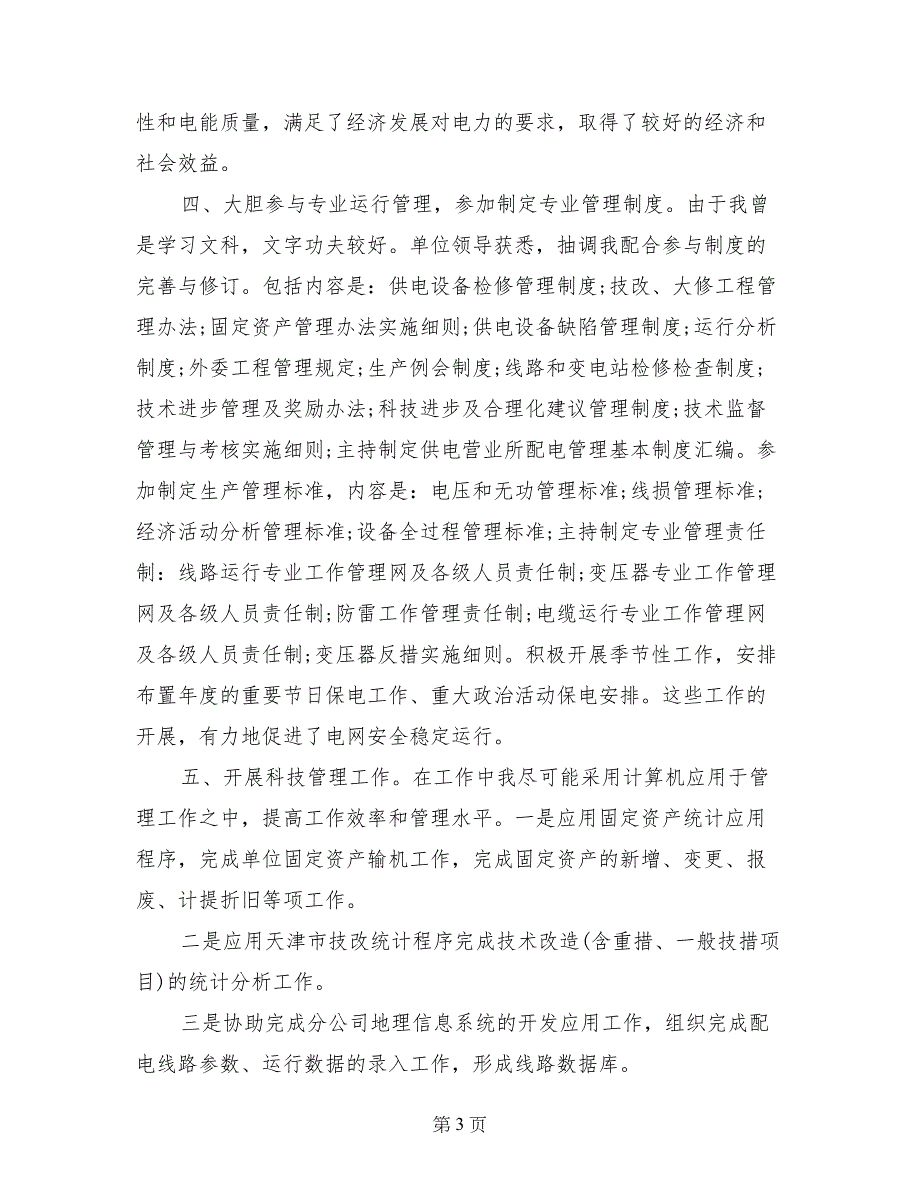 性和电能质量，满足了经济发展对电力的要求，取得了较好的经济和
社会效益。
四、大胆参与专业运行管理，参加制定专业管理制度。由于我曾
是学习文科，文字功夫较好。单位领导获悉，抽调我配合参与制度的
完善与修订。包括内容是：供电设备检修管理制度;技改、大修工程管
理办法;固定资产管理办法实施细则;供电设备缺陷管理制度;运行分析
制度;外委工程管理规定;生产例会制度;线路和变电站检修检查制度;
技术进步管理及奖励办法;科技进步及合理化建议管理制度;技术监督
管理与考核实施细则;主持制定供电营业所配电管理基本制度汇编。参
加制定生产管理标准，内容是：电压和无功管理标准;线损管理标准;
经济活动分析管理标准;设备全过程管理标准;主持制定专业管理责任
制：线路运行专业工作管理网及各级人员责任制;变压器专业工作管理
网及各级人员责任制;防雷工作管理责任制;电缆运行专业工作管理网
及各级人员责任制;变压器反措实施细则。积极开展季节性工作，安排
布置年度的重要节日保电工作、重大政治活动保电安排。这些工作的
开展，有力地促进了电网安全稳定运行。
五、开展科技管理工作。在工作中我尽可能采用计算机应用于管
理工作之中，提高工作效率和管理水平。一是应用固定资产统计应用
程序，完成单位固定资产输机工作，完成固定资产的新增、变更、报
废、计提折旧等项工作。
二是应用天津市技改统计程序完成技术改造(含重措、一般技措项
目)的统计分析工作。
三是协助完成分公司地理信息系统的开发应用工作，组织完成配
电线路参数、运行数据的录入工作，形成线路数据库。
第 3 页